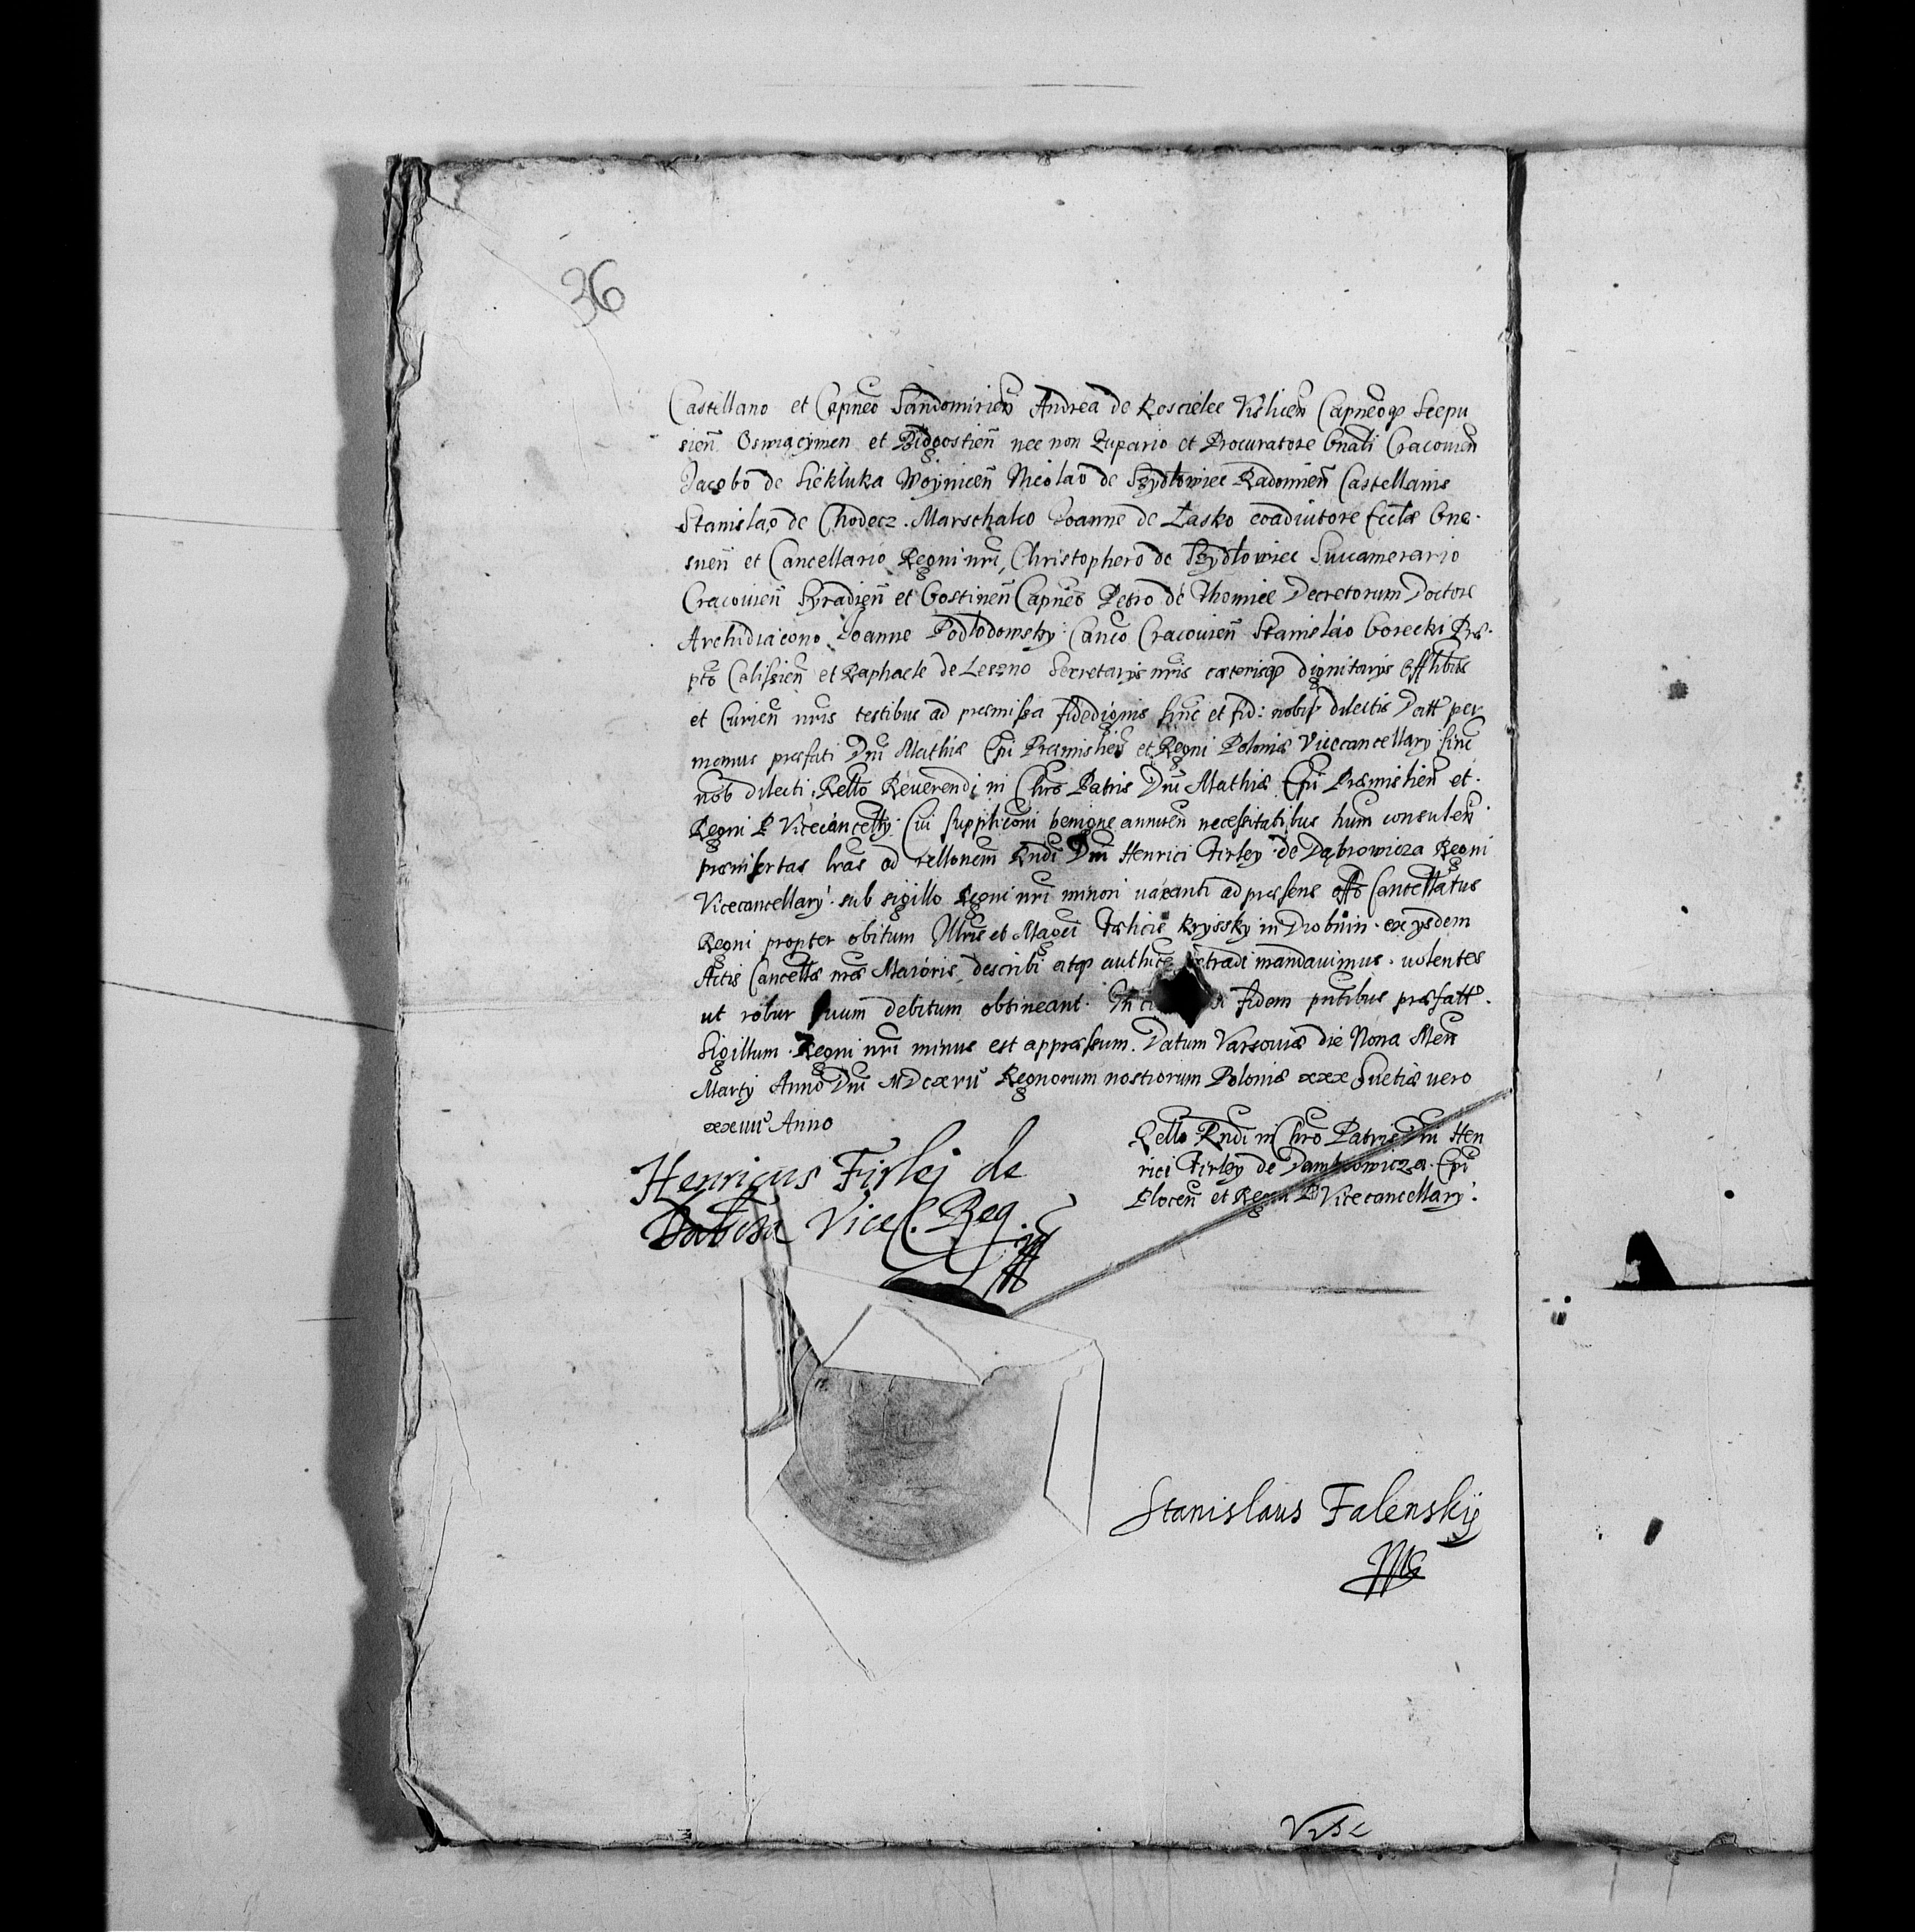 36
Castellano et Capneo Sandomirien Andrea de Koscielec Vislicen Capneoq Scepu
sien Oswiacimen et Bidgostien nec non Zupario et Procuratore Gnali Cracouien
Jacobo de Siekluka Woynicen Nicolao de Szydlowiec Radomien Castellanis
Stanislao de Chodecz. Marschalco Joanne de Lasko coadiutore Ecclae Gne.
snen et Cancellario Regni nri, Christophero de Szydlowiec Succamerario
Cracouien Syradien et Gostinen Capneo Petro de Thomice Decretorum Doctore
Archidiacono Joanne Podlodowsky Canco Cracouien Stanislao Gorecki Præ.
pto Calissien et Raphaele de Leszno Secretarijs nris cæterisq dignitarijs Offlibus
et Curien nris testibus ad præmissa fidedignis sinc et fid: nobis dilectis Datt per
manus præfati Dni Mathiæ Epi Præmislien et Regni Poloniæ Vicecancellary sinc
nob dilecti. Rello Reuerendi in Chro Patris Dni Mathiæ Epi Præmislien et.
Regni P Vicecancelly. Cui suppliconi benigne annuen necessitatibus hum consulen
præinsertas lras ad rellonem Rndi Dni Henrici Firley de Dąbrowicza Regni
Vicecancellary. sub sigillo Regni nri minori uacanti ad præsens offo Cancellatus
Regni propter obitum Illris et Magci Fælicis Kryssky in Drobnin. ex ysdem
Actis Cancellæ næ Maioris describi atq authce extradi mandauimus. uolentes
ut robur suum debitum obtineant. In fidem pntibus præfatt.
Sigillum. Regni nri minus est appressum. Datum Varsouiæ die Nona Men
Marty Anno Dni MDCXVII Regnorum nostrorum Poloniæ xxx Suetiæ uero
xxiiii Anno
Rello Rndi in Chro Patris Dni Hen
rici Firley de Dambrowicza. Epi
Plocen et Regni P Vicecancellary.
Henricus Firlej de
Vice C. Reg.
Stanislaus Falenskÿ